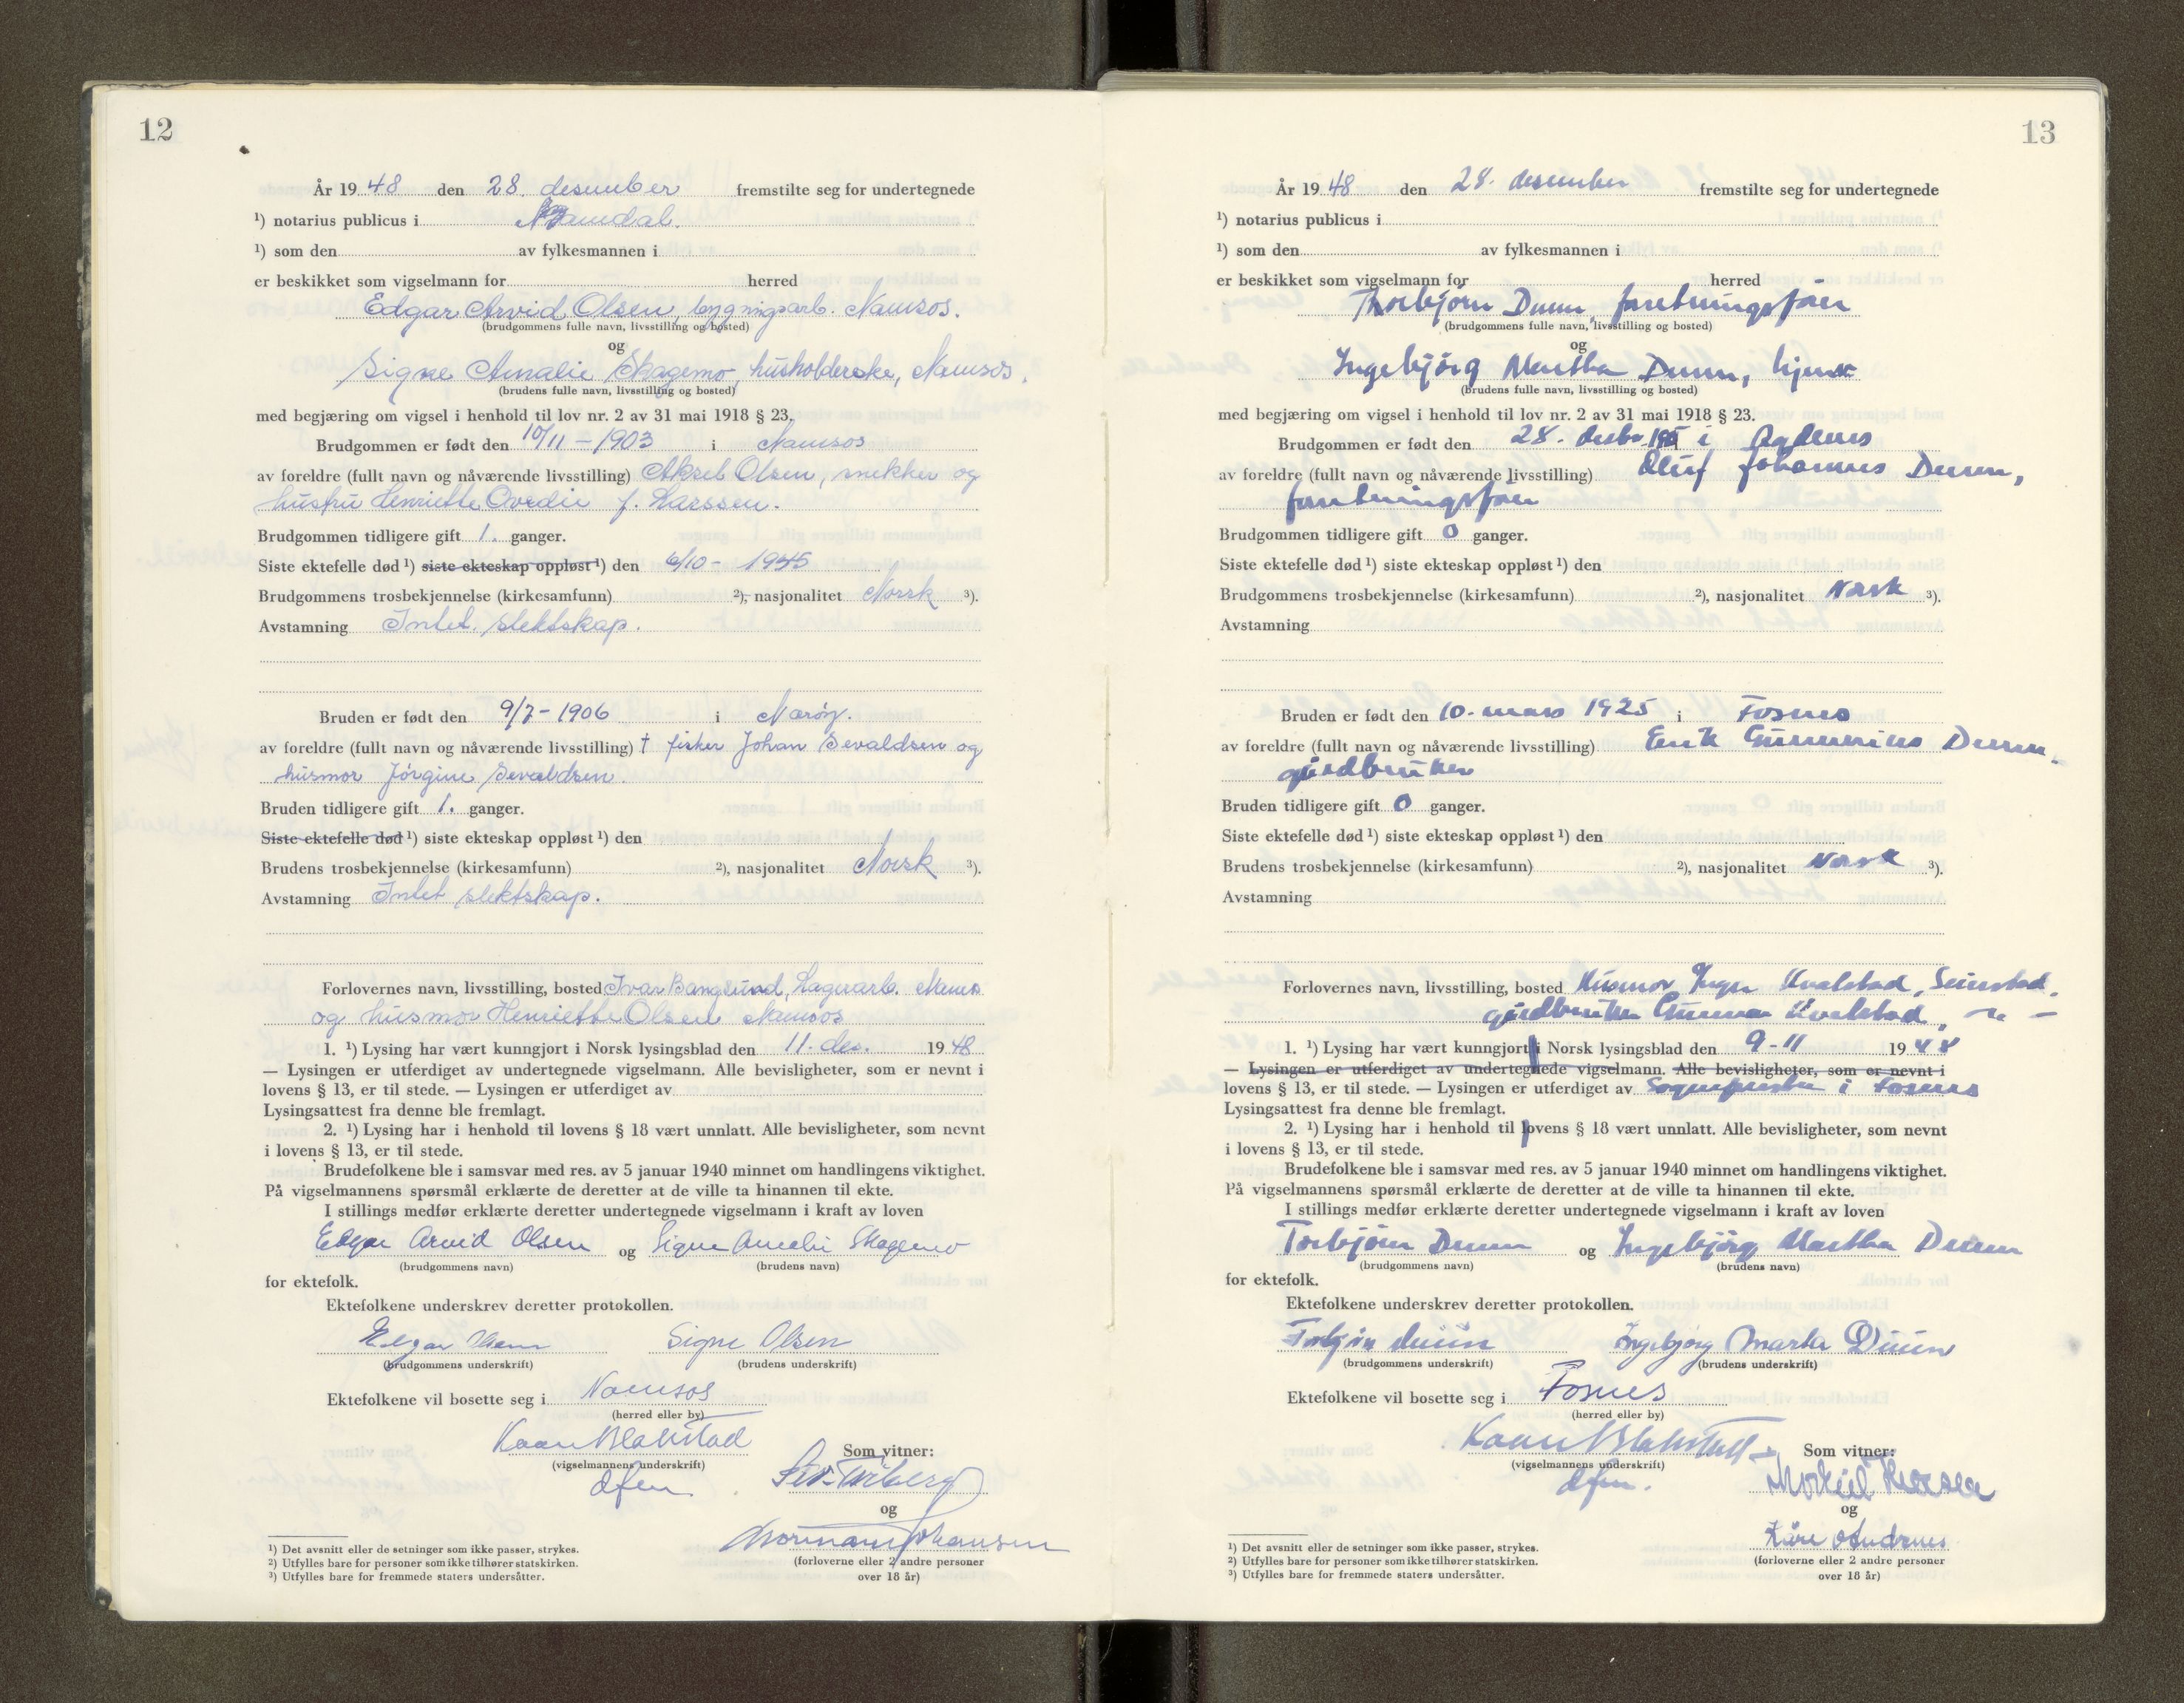 12
År 19 48 den 28. desember fremstilte seg for undertegnede
¹) notarius publicus i Namdal.
¹) som den av fylkesmannen i
er beskikket som vigselmann for herred
Edgar Arvid Olsen, bygningsarb. Namsos.
(brudgommens fulle navn, livsstilling og bosted)
og
Signe Amalie Skagemo, husholderske, Namsos.
(brudens fulle navn, livsstilling og bosted)
med begjæring om vigsel i henhold til lov nr. 2 av 31 mai 1918 § 23.
Brudgommen er født den 10/11 - 1903 i Namsos
av foreldre (fullt navn og nåværende livsstilling) Aksel Olsen, snekker og
hustru Henriette Ovedie f. Larssen.
Brudgommen tidligere gift 1. ganger.
Siste ektefelle død ¹) siste ekteskap oppløst ¹) den 6/10 - 1945
Brudgommens trosbekjennelse (kirkesamfunn) ²), nasjonalitet Norsk ³).
Avstamning Intet slektskap.
Bruden er født den 9/7 - 1906 i Nærøy.
av foreldre (fullt navn og nåværende livsstilling) † fisker Johan Sevaldsen og
husmor Jørgine Sevaldsen.
Bruden tidligere gift 1. ganger.
Siste ektefelle død ¹) siste ekteskap oppløst ¹) den
Brudens trosbekjennelse (kirkesamfunn) ²), nasjonalitet Norsk ³).
Avstamning Intet slektskap.
Forlovernes navn, livsstilling, bosted Ivar Bangsund, Lagerarb. Namsos
og husmor Henriette Olsen Namsos
1. ¹) Lysing har vært kunngjort i Norsk lysingsblad den 11. des. 19 48
— Lysingen er utferdiget av undertegnede vigselmann. Alle bevisligheter, som er nevnt i
lovens § 13, er til stede. — Lysingen er utferdiget av
Lysingsattest fra denne ble fremlagt.
2. ¹) Lysing har i henhold til lovens § 18 vært unnlatt. Alle bevisligheter, som nevnt
i lovens § 13, er til stede.
Brudefolkene ble i samsvar med res. av 5 januar 1940 minnet om handlingens viktighet.
På vigselmannens spørsmål erklærte de deretter at de ville ta hinannen til ekte.
I stillings medfør erklærte deretter undertegnede vigselmann i kraft av loven
Edgar Arvid Olsen og Signe Amelie Skagemo
(brudgommens navn) (brudens navn)
for ektefolk.
Ektefolkene underskrev deretter protokollen.
Edgar Olsen Signe Olsen
(brudgommens underskrift) (brudens underskrift)
Ektefolkene vil bosette seg i Namsos
(herred eller by)
Kaare Blakstad Som vitner:
(vigselmannens underskrift)
og
Normann Johansen
(forloverne eller 2 andre personer
over 18 år)
¹) Det avsnitt eller de setninger som ikke passer, strykes.
²) Utfylles bare for personer som ikke tilhører statskirken.
³) Utfylles bare for fremmede staters undersåtter.
13
År 19 48 den 28. desember fremstilte seg for undertegnede
¹) notarius publicus i
¹) som den av fylkesmannen i
er beskikket som vigselmann for herred
Thorbjørn Duun, forretningsfører
(brudgommens fulle navn, livsstilling og bosted)
og
Ingebjørg Martha Duun, hjem
(brudens fulle navn, livsstilling og bosted)
med begjæring om vigsel i henhold til lov nr. 2 av 31 mai 1918 § 23.
Brudgommen er født den 28. desbr. i Agdenes
av foreldre (fullt navn og nåværende livsstilling) Oluf Johannes Duun,
forretningsfører
Brudgommen tidligere gift 0 ganger.
Siste ektefelle død ¹) siste ekteskap oppløst ¹) den
Brudgommens trosbekjennelse (kirkesamfunn) ²), nasjonalitet Norsk ³).
Avstamning
Bruden er født den 10. mars 1925 i Fosnes
av foreldre (fullt navn og nåværende livsstilling) Erik Gunnerius Duun,
gårdbruker
Bruden tidligere gift 0 ganger.
Siste ektefelle død ¹) siste ekteskap oppløst ¹) den
Brudens trosbekjennelse (kirkesamfunn) ²), nasjonalitet Norsk ³).
Avstamning
Forlovernes navn, livsstilling, bosted Husmor Inger Kvalstad, Seierstad,
gårdbruker Gunnar Kvalstad, — " —
1. ¹) Lysing har vært kunngjort i Norsk lysingsblad den 9-11 19 48
— Lysingen er utferdiget av undertegnede vigselmann. Alle bevisligheter, som er nevnt i
lovens § 13, er til stede. — Lysingen er utferdiget av Sognepresten i Fosnes
Lysingsattest fra denne ble fremlagt.
2. ¹) Lysing har i henhold til lovens § 18 vært unnlatt. Alle bevisligheter, som nevnt
i lovens § 13, er til stede.
Brudefolkene ble i samsvar med res. av 5 januar 1940 minnet om handlingens viktighet.
På vigselmannens spørsmål erklærte de deretter at de ville ta hinannen til ekte.
I stillings medfør erklærte deretter undertegnede vigselmann i kraft av loven
Torbjørn Duun og Ingebjørg Martha Duun
(brudgommens navn) (brudens navn)
for ektefolk.
Ektefolkene underskrev deretter protokollen.
Torbjørn Duun Ingebjørg Marta Duun
(brudgommens underskrift) (brudens underskrift)
Ektefolkene vil bosette seg i Fosnes
(herred eller by)
Kaare Blakstad Som vitner:
(vigselmannens underskrift)
og
Kåre
(forloverne eller 2 andre personer
over 18 år)
¹) Det avsnitt eller de setninger som ikke passer, strykes.
²) Utfylles bare for personer som ikke tilhører statskirken.
³) Utfylles bare for fremmede staters undersåtter.